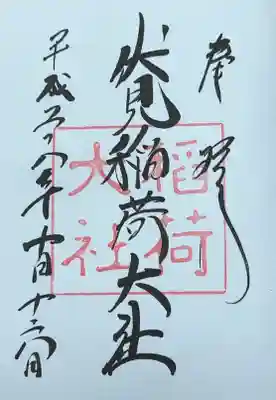 奉拝
伏見稲荷大社
稲荷
大社
平成 八年 月十 日